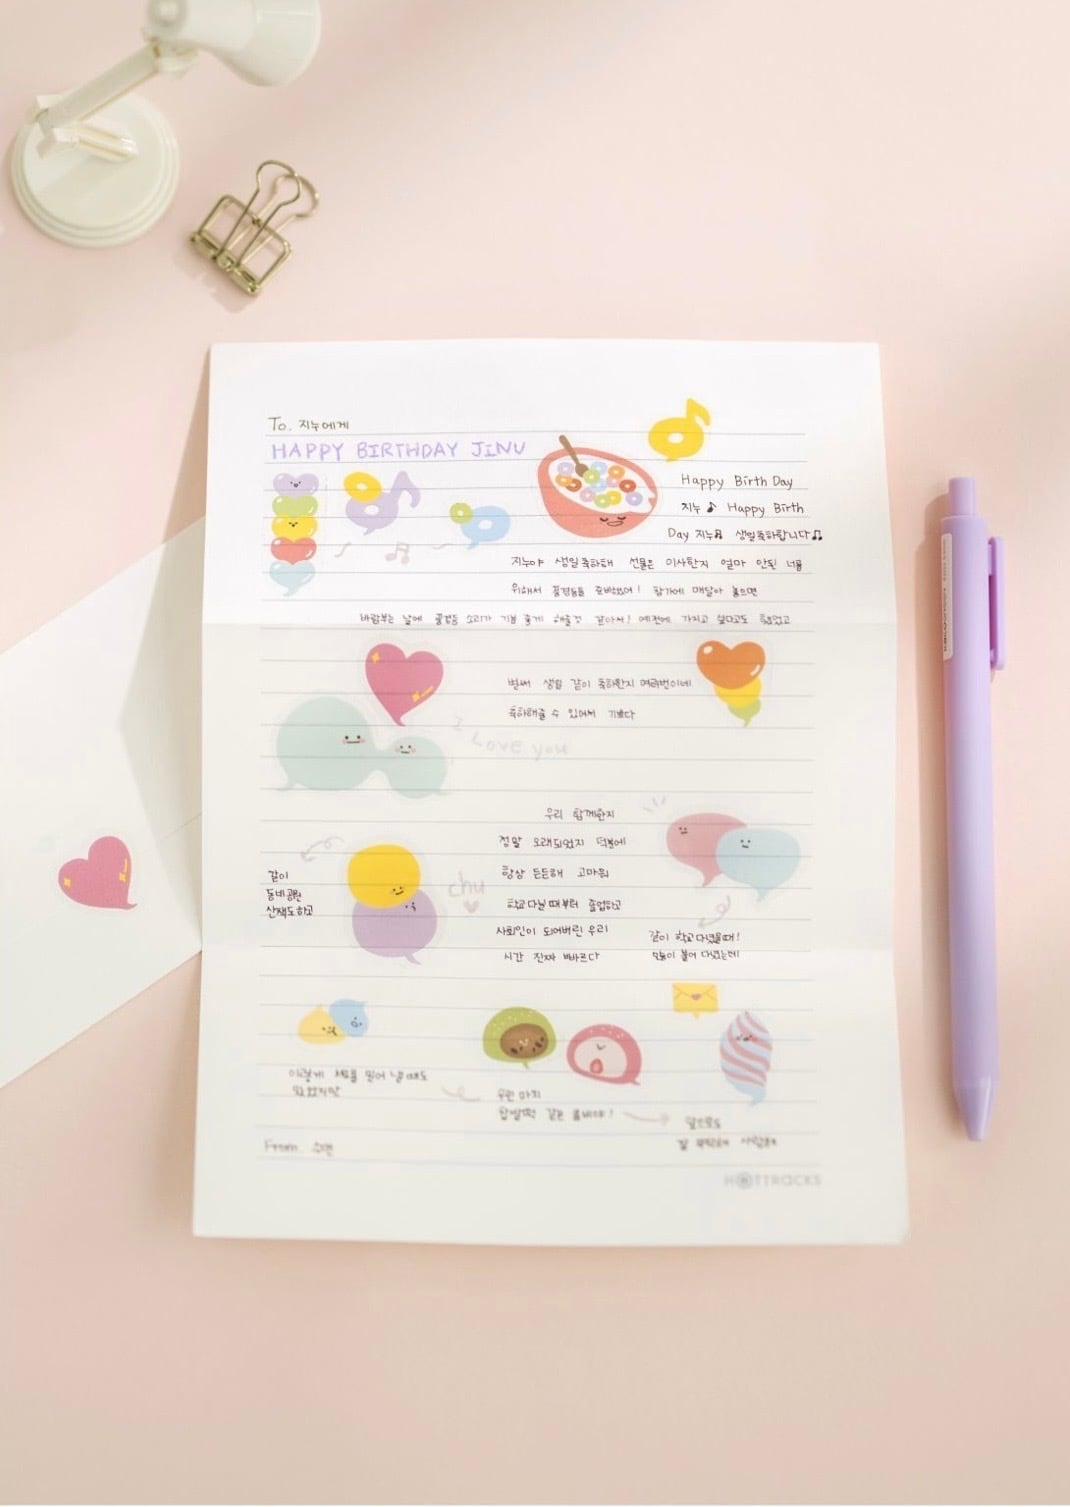 To. 지누에게
HAPPY BIRTHDAY JINU
Happy Birth Day
지누♪ Happy Birth
Day 지누♬ 생일축하합니다♫
지누야 생일축하해 선물은 이사한지 얼마 안된 너를
위해서 풍경등을 준비했어! 창가에 매달아 놓으면
바람부는 날에 풍경등 소리가 기분 좋게 해줄것 같아서! 예전에 가지고 싶다고도 했었고
벌써 생일 같이 축하한지 여러번이네
축하해줄 수 있어서 기쁘다
I Love you
우리 함께한지
정말 오래되었지 덕분에
항상 든든해 고마워
학교다닐때부터 졸업하고
사회인이 되어버린 우리
시간 진짜 빠르다
같이
동네공원
산책도하고
chu
같이 학교다녔을때!
모둠이 붙어 다녔는데
이렇게 서로를 밀어 낼때도
있었지만
우린 마치
찹쌀떡 같은 콤비야!
앞으로도
잘 부탁해 사랑해
From.
HOTTRACKS